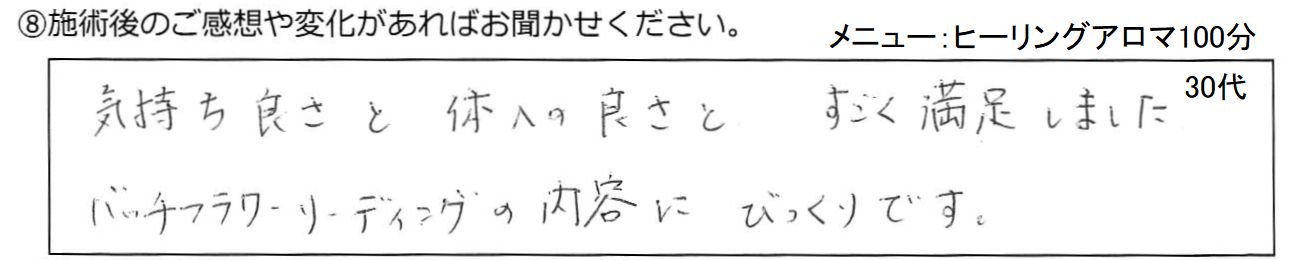 ⑧施術後のご感想や変化があればお聞かせください。
メニュー：ヒーリングアロマ100分
30代
気持ち良さと 体への良さと すごく満足しました
バッチフラワーリーディングの内容に びっくりです。